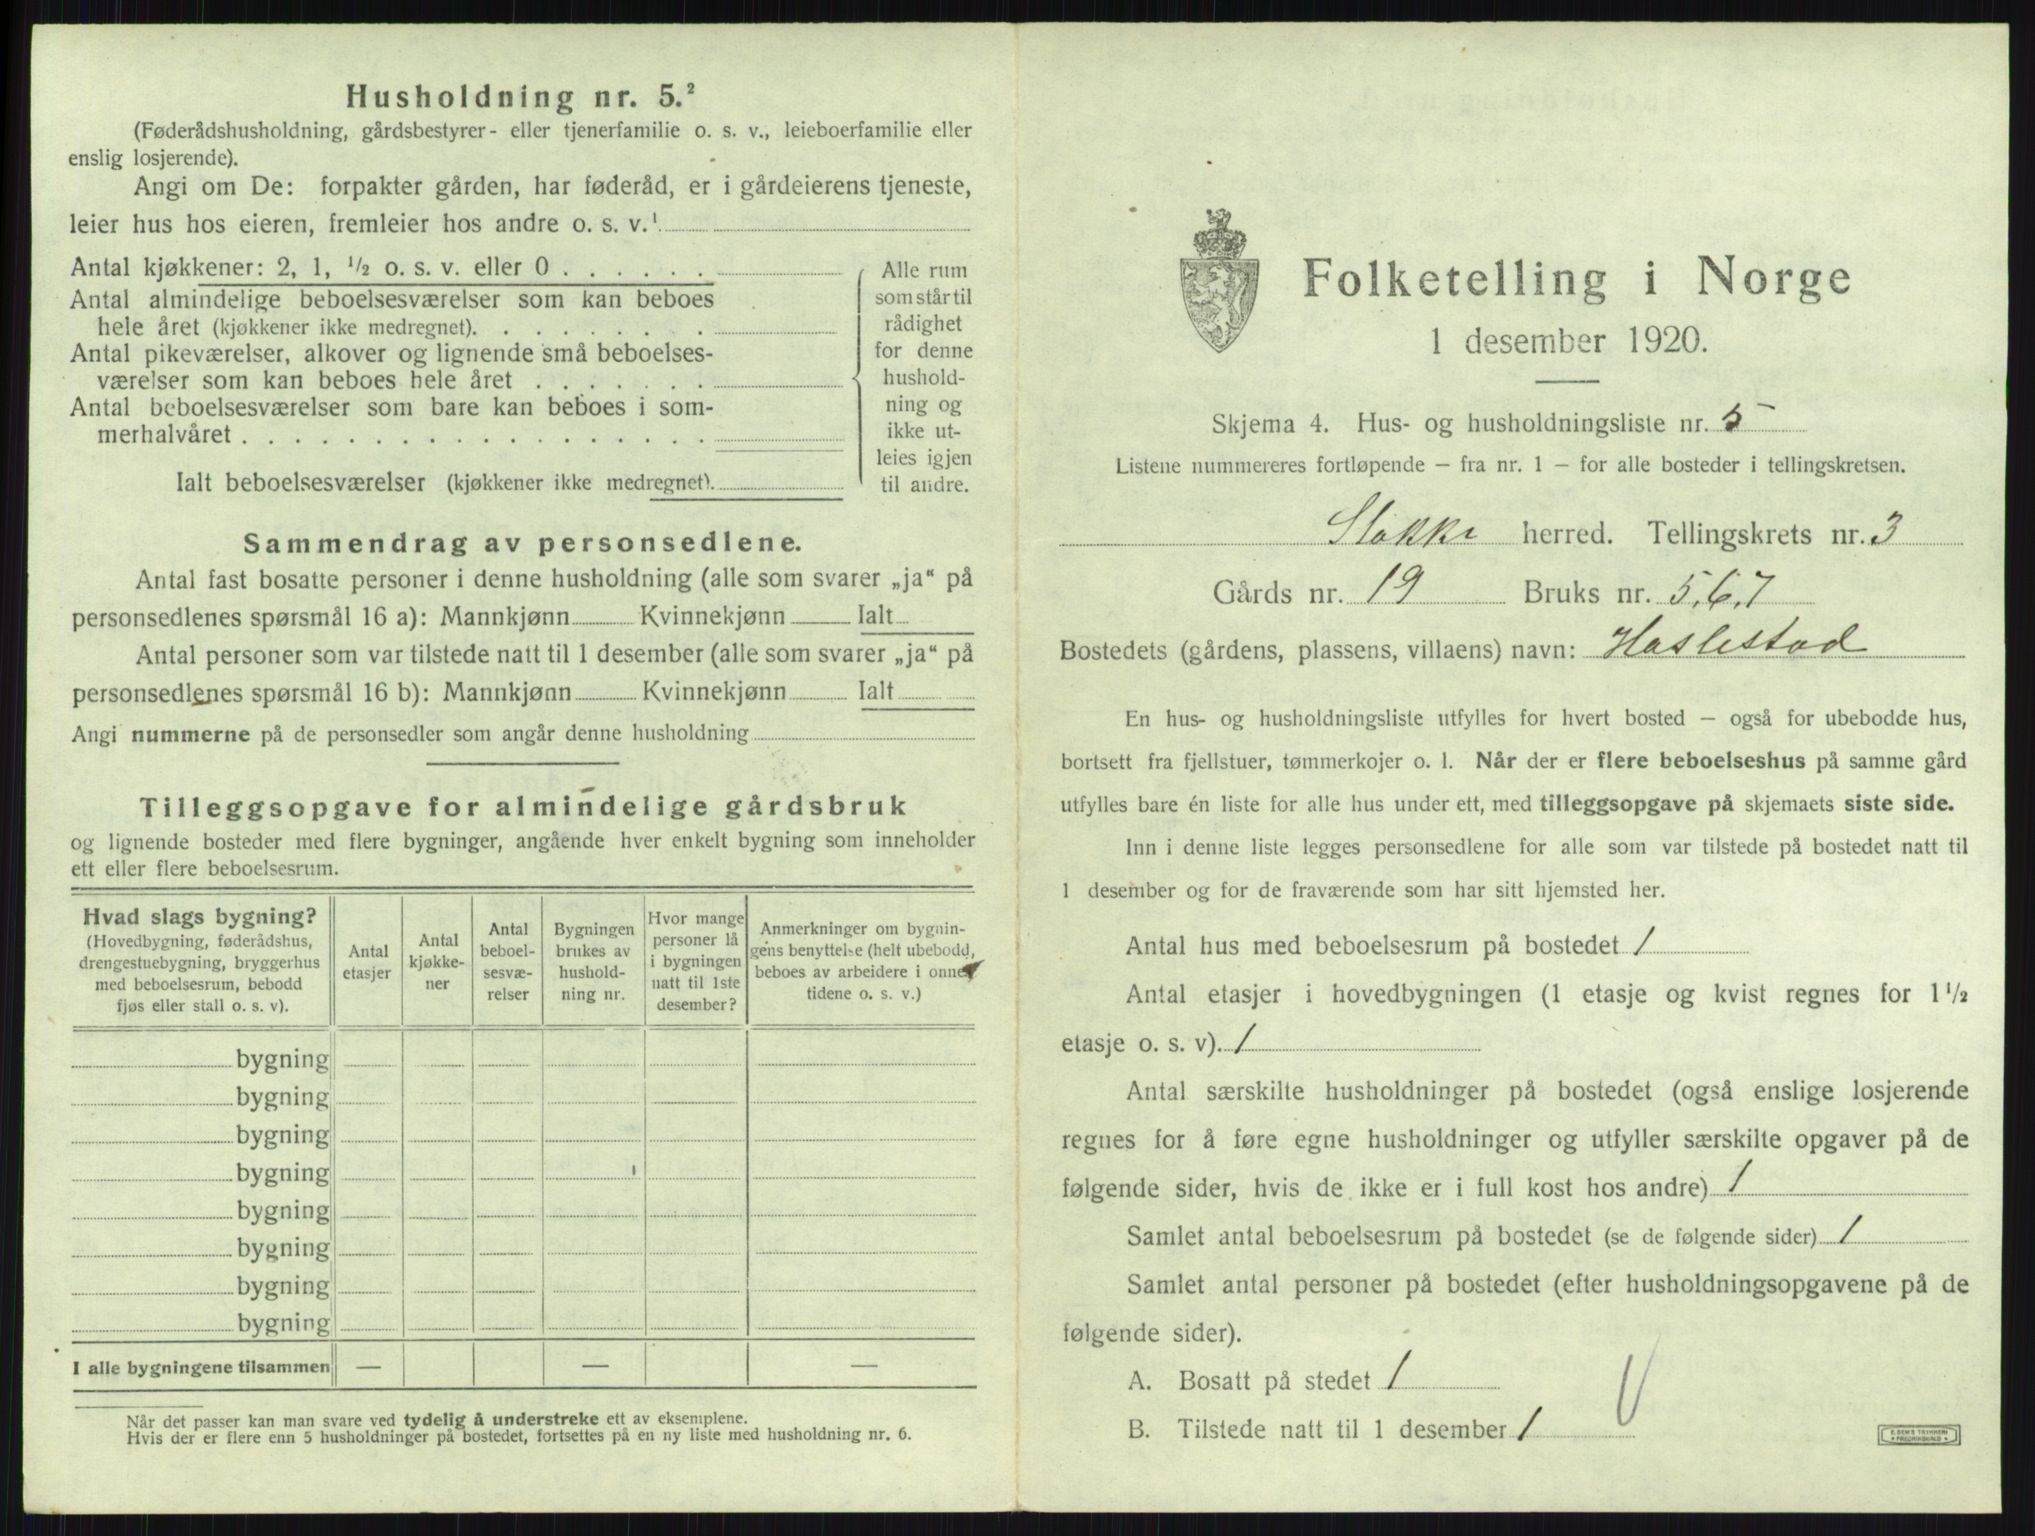 Husholdning nr. 5.²
(Føderådshusholdning, gårdsbestyrer- eller tjenerfamilie o. s. v., leieboerfamilie eller
enslig losjerende).
Angi om De: forpakter gården, har føderåd, er i gårdeierens tjeneste,
leier hus hos eieren, fremleier hos andre o. s. v.¹
Antal kjøkkener: 2, 1, ½ o. s. v. eller 0 . . . . . .
Antal almindelige beboelsesværelser som kan beboes
hele året (kjøkkener ikke medregnet). . . . . . . . .
Antal pikeværelser, alkover og lignende små beboelses-
værelser som kan beboes hele året . . . . . . .
Antal beboelsesværelser som bare kan beboes i som-
merhalvåret . . . . . . . . . . . . . . . . . .
Ialt beboelsesværelser (kjøkkener ikke medregnet).
Alle rum
som står til
rådighet
for denne
hushold-
ning og
ikke ut-
leies igjen
til andre.
Sammendrag av personsedlene.
Antal fast bosatte personer i denne husholdning (alle som svarer „ja“ på
personsedlenes spørsmål 16 a): Mannkjønn Kvinnekjønn Ialt
Antal personer som var tilstede natt til 1 desember (alle som svarer „ja“ på
personsedlenes spørsmål 16 b): Mannkjønn Kvinnekjønn Ialt
Angi nummerne på de personsedler som angår denne husholdning
Tilleggsopgave for almindelige gårdsbruk
og lignende bosteder med flere bygninger, angående hver enkelt bygning som inneholder
ett eller flere beboelsesrum.
Hvad slags bygning?
(Hovedbygning, føderådshus,
drengestuebygning, bryggerhus
med beboelsesrum, bebodd
fjøs eller stall o. s. v).
Antal
etasjer
Antal
kjøkke-
ner
Antal
beboel-
sesvæ-
relser
Bygningen
brukes av
hushold-
ning nr.
Hvor mange
personer lå
i bygningen
natt til 1ste
desember?
Anmerkninger om bygnin-
gens benyttelse (helt ubebodd,
beboes av arbeidere i onne-
tidene o. s. v.)
bygning
bygning
bygning
bygning
bygning
bygning
bygning
bygning
I alle bygningene tilsammen — — —
Når det passer kan man svare ved tydelig å understreke ett av eksemplene.
Hvis der er flere enn 5 husholdninger på bostedet, fortsettes på en ny liste med husholdning nr. 6.
Folketelling i Norge
1 desember 1920.
Skjema 4. Hus- og husholdningsliste nr. 5
Listene nummereres fortløpende — fra nr. 1 — for alle bosteder i tellingskretsen.
Stokke herred. Tellingskrets nr. 3
Gårds nr. 19 Bruks nr. 5,6,7
Bostedets (gårdens, plassens, villaens) navn: Haslestad
En hus- og husholdningsliste utfylles for hvert bosted — også for ubebodde hus,
bortsett fra fjellstuer, tømmerkojer o. l. Når der er flere beboelseshus på samme gård
utfylles bare én liste for alle hus under ett, med tilleggsopgave på skjemaets siste side.
Inn i denne liste legges personsedlene for alle som var tilstede på bostedet natt til
1 desember og for de fraværende som har sitt hjemsted her.
Antal hus med beboelsesrum på bostedet 1
Antal etasjer i hovedbygningen (1 etasje og kvist regnes for 1½
etasje o. s. v). 1
Antal særskilte husholdninger på bostedet (også enslige losjerende
regnes for å føre egne husholdninger og utfyller særskilte opgaver på de
følgende sider, hvis de ikke er i full kost hos andre) 1
Samlet antal beboelsesrum på bostedet (se de følgende sider) 1
Samlet antal personer på bostedet (efter husholdningsopgavene på de
følgende sider).
A. Bosatt på stedet 1
B. Tilstede natt til 1 desember 1